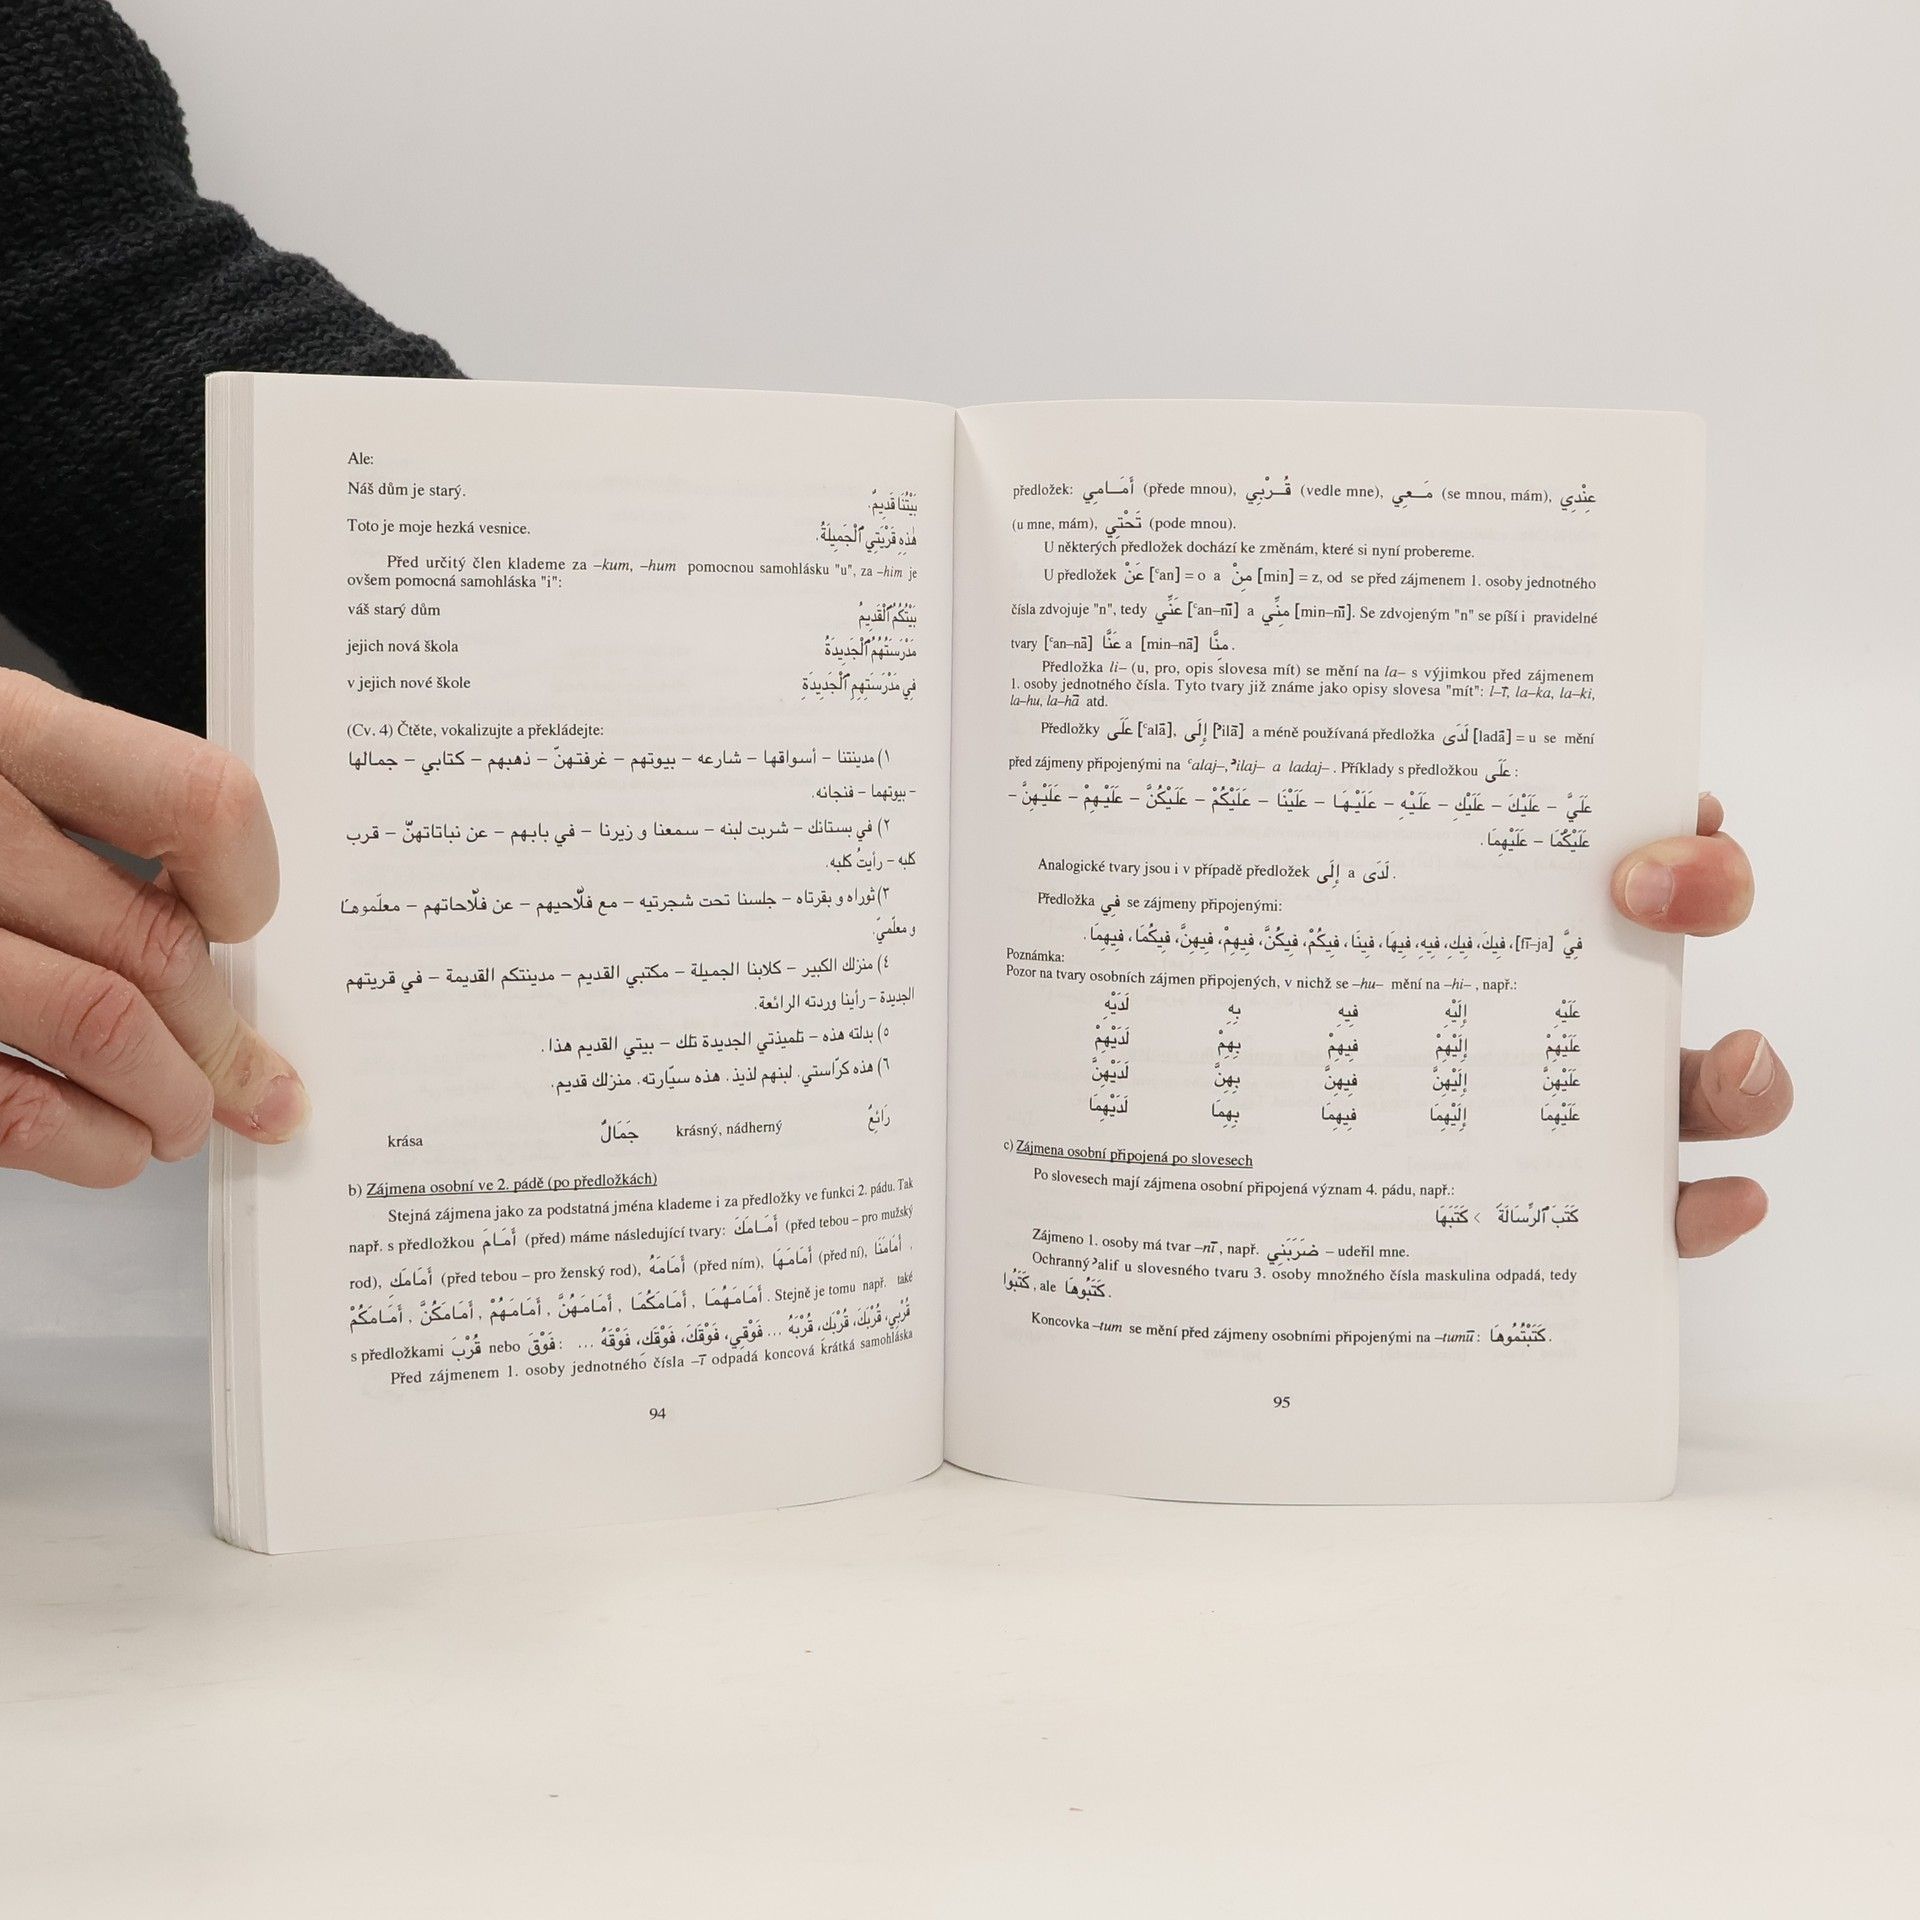 Ale:
Náš dům je starý. بَيْتُنَا قَدِيمٌ.
Toto je moje hezká vesnice. هٰذِهِ قَرْيَتِي ٱلْجَمِيلَةُ.
Před určitý člen klademe za –kum, –hum pomocnou samohlásku "u", za –him je
ovšem pomocná samohláska "i":
váš starý dům بَيْتُكُمُ ٱلْقَدِيمُ
jejich nová škola مَدْرَسَتُهُمُ ٱلْجَدِيدَةُ
v jejich nové škole فِي مَدْرَسَتِهِمِ ٱلْجَدِيدَةِ
(Cv. 4) Čtěte, vokalizujte a překládejte:
١) مدينتنا – أسواقها – شارعه – بيوتهم – غرفتهنّ – ذهبهم – كتابي – جمالها
- بيوتهما – فنجانه.
٢) في بستانك – شربت لبنه – سمعنا و زيرنا – في بابهم – عن نباتاتهنّ – قرب
كلبه – رأيتُ كلبه.
٣) ثوراه و بقرتاه – جلسنا تحت شجرتيه – مع فلّاحيهم – عن فلّاحاتهم – معلّموهـَا
و معلّميّ.
٤) منزلك الكبير – كلابنا الجميلة – مكتبي القديم – مدينتكم القديمة – في قريتهم
الجديدة – رأينا وردته الرائعة.
٥) بدلته هذه – تلميذتي الجديدة تلك – بيتي القديم هذا.
٦) هذه كرّاستي. لبنهم لذيذ. هذه سيّارته. منزلك قديم.
krása جَمَالٌ krásný, nádherný رَائِعٌ
b) Zájmena osobní ve 2. pádě (po předložkách)
Stejná zájmena jako za podstatná jména klademe i za předložky ve funkci 2. pádu. Tak
např. s předložkou أَمَـامَ (před) máme následující tvary: أَمَـامَكَ (před tebou – pro mužský
rod), أَمَـامَكِ (před tebou – pro ženský rod), أَمَامَهُ (před ním), أَمَامَهَا (před ní), أَمَامَنَا ,
أَمَـامَكُمْ , أَمَـامَكُنَّ , أَمَـامَهُمْ , أَمَـامَهُنَّ , أَمَـامَكُمَا , أَمَـامَهُمَا . Stejně je tomu např. také
s předložkami قُرْبَ nebo فَوْقَ : قُرْبِي، قُرْبَكَ، قُرْبَكِ، قُرْبَهُ ... فَوْقِي، فَوْقَكَ، فَوْقَكِ، فَوْقَهُ ...
Před zájmenem 1. osoby jednotného čísla –ī odpadá koncová krátká samohláska
94
předložek: أَمَـامِي (přede mnou), قُـرْبِي (vedle mne), مَـعِي (se mnou, mám), عِنْدِي
(u mne, mám), تَحْتِي (pode mnou).
U některých předložek dochází ke změnám, které si nyní probereme.
U předložek عَنْ [ʿan] = o a مِنْ [min] = z, od se před zájmenem 1. osoby jednotného
čísla zdvojuje "n", tedy عَنِّي [ʿan–nī] a مِنِّي [min–nī]. Se zdvojeným "n" se píší i pravidelné
tvary [ʿan–nā] عَنَّا a [min–nā] مِنَّا .
Předložka li– (u, pro, opis slovesa mít) se mění na la– s výjimkou před zájmenem
1. osoby jednotného čísla. Tyto tvary již známe jako opisy slovesa "mít": l–ī, la–ka, la–ki,
la–hu, la–hā atd.
Předložky عَلَى [ʿalā], إِلَى [ʾilā] a méně používaná předložka لَدَى [ladā] = u se mění
před zájmeny připojenými na ʿalaj–, ʾilaj– a ladaj– . Příklady s předložkou عَلَى :
عَلَيَّ – عَلَيْكَ – عَلَيْكِ – عَلَيْهِ – عَلَيْـهَا – عَلَيْنَا – عَلَيْكُمْ – عَلَيْكُنَّ – عَلَيْـهِمْ – عَلَيْـهِنَّ –
عَلَيْكُمَا – عَلَيْهِمَا .
Analogické tvary jsou i v případě předložek إِلَى a لَدَى .
Předložka فِي se zájmeny připojenými:
فِيَّ [fī–ja]، فِيكَ، فِيكِ، فِيهِ، فِيهَا، فِينَا، فِيكُمْ، فِيكُنَّ، فِيهِمْ، فِيهِنَّ، فِيكُمَا، فِيهِمَا.
Poznámka:
Pozor na tvary osobních zájmen připojených, v nichž se –hu– mění na –hi– , např.:
عَلَيْهِ إِلَيْهِ فِيهِ بِهِ لَدَيْهِ
عَلَيْهِمْ إِلَيْهِمْ فِيهِمْ بِهِمْ لَدَيْهِمْ
عَلَيْهِنَّ إِلَيْهِنَّ فِيهِنَّ بِهِنَّ لَدَيْهِنَّ
عَلَيْهِمَا إِلَيْهِمَا فِيهِمَا بِهِمَا لَدَيْهِمَا
c) Zájmena osobní připojená po slovesech
Po slovesech mají zájmena osobní připojená význam 4. pádu, např.:
كَتَبَ ٱلرِّسَالَةَ > كَتَبَهَا
Zájmeno 1. osoby má tvar –nī , např. ضَرَبَنِي – udeřil mne.
Ochranný ʾalif u slovesného tvaru 3. osoby množného čísla maskulina odpadá, tedy
كَتَبُوا , ale كَتَبُوهَا .
Koncovka –tum se mění před zájmeny osobními připojenými na –tumū : كَتَبْتُمُوهَا .
95